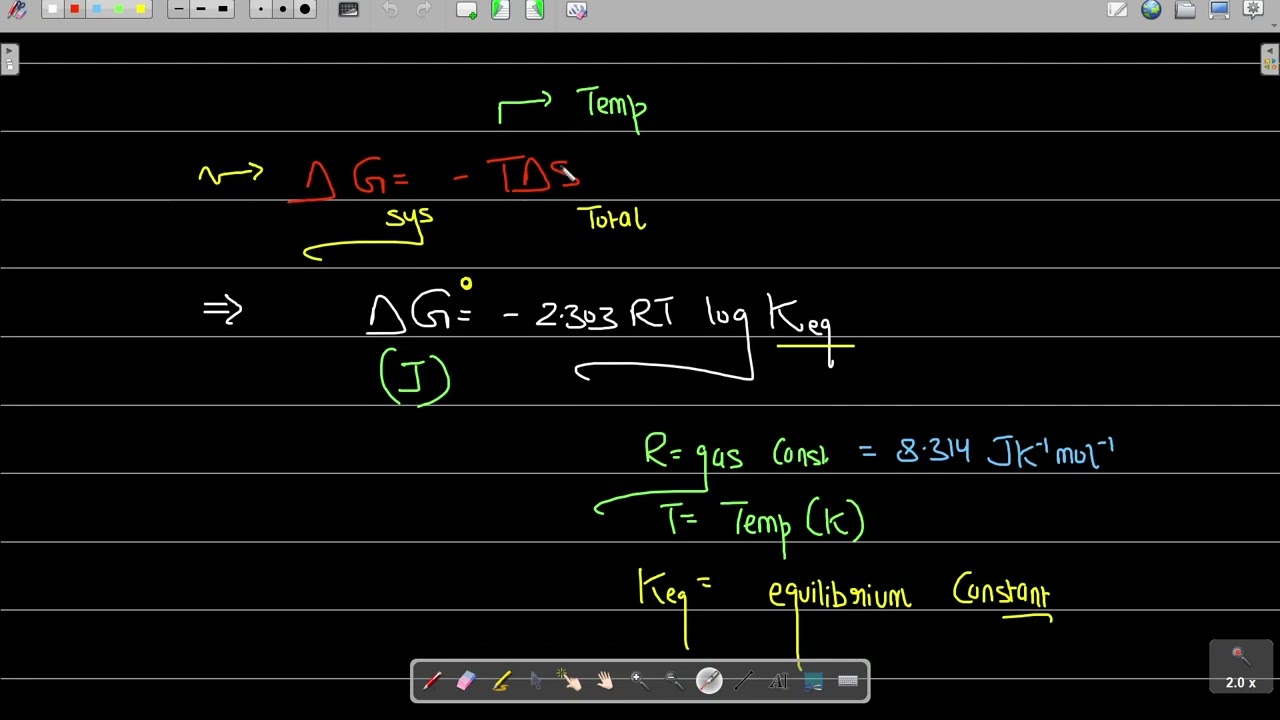 Temp
ΔG = - TΔS
sys Total
⇒ ΔG° = - 2.303 RT log Keq
(J)
R = gas Const = 8.314 JK⁻¹mol⁻¹
T = Temp (K)
Keq = equilibrium Constant
AI
2.0 x